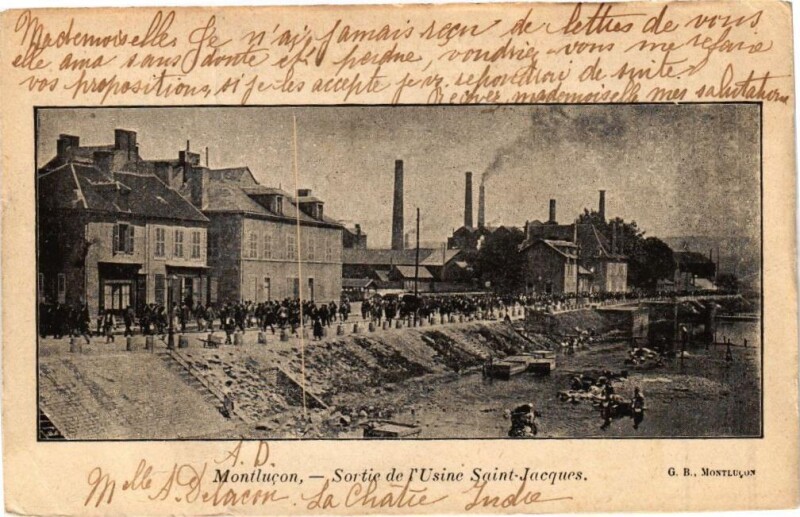 Mademoiselle Je n'ai jamais reçu de lettres de vous
elle aura sans doute été perdue, voudriez-vous me refaire
vos propositions, si je les accepte je répondrai de suite.
Recevez mademoiselle mes salutations
A. D.
Montluçon, — Sortie de l'Usine Saint-Jacques.
G. B., MONTLUÇON
Mlle A. Delacou. La Châtre Indre